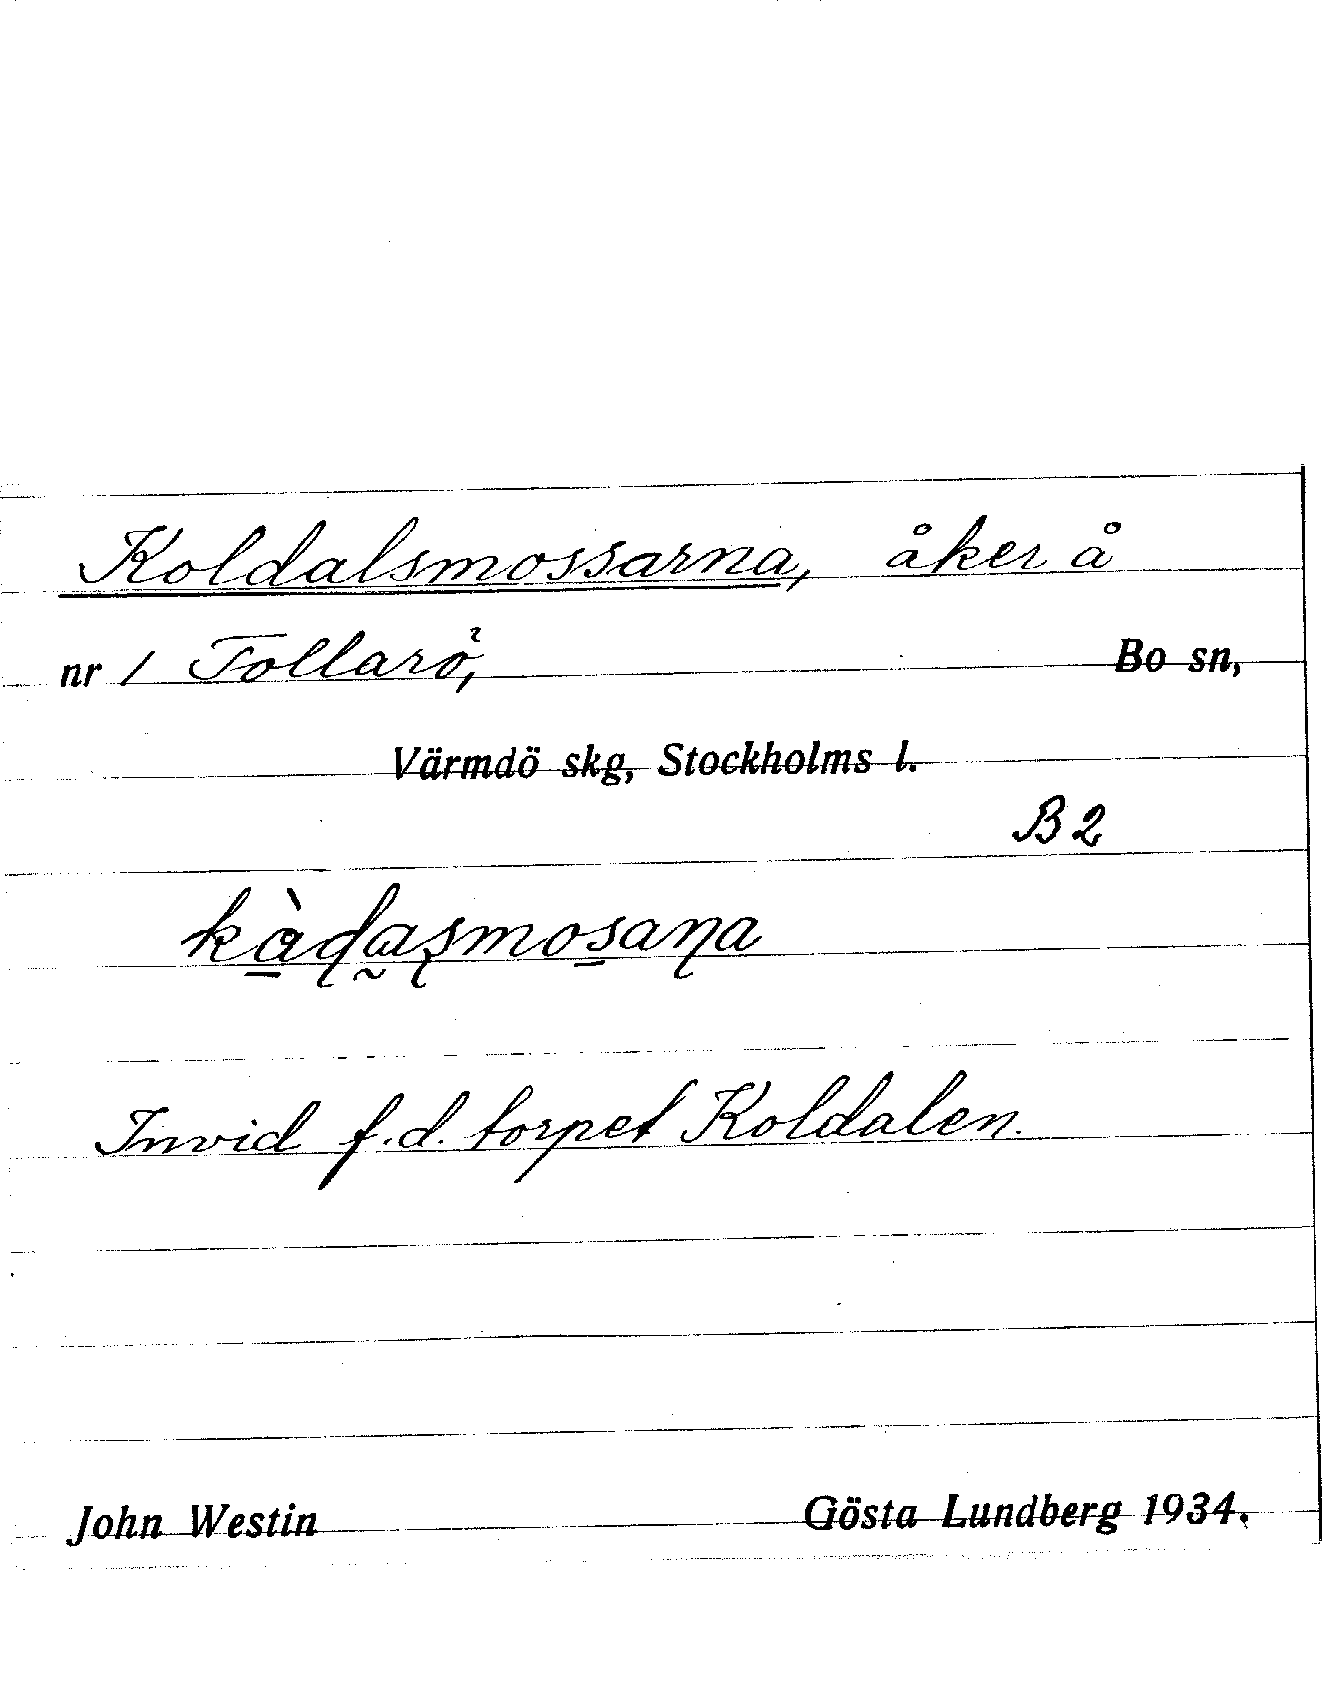 Koldalsmossarna, åker å
nr 1 Tollarö, Bo sn,
Värmdö skg, Stockholms l.
B 2
Invid f.d. torpet Koldalen.
John Westin Gösta Lundberg 1934.